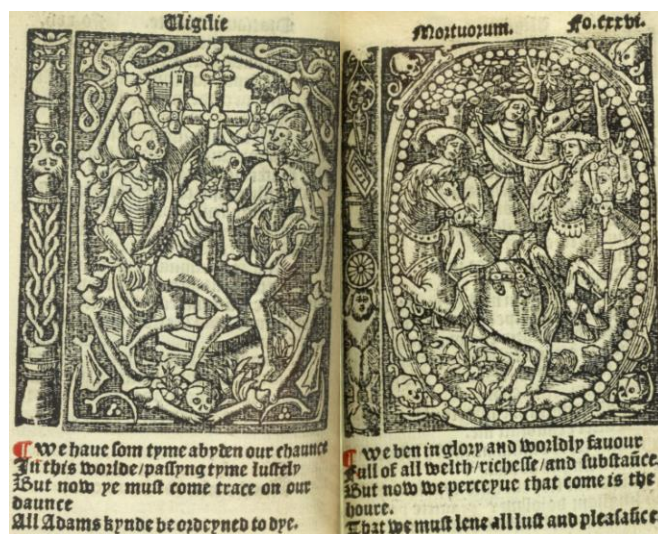 Uigilie
¶ We haue som tyme abyden our chaunce
In this worlde/passyng tyme lustely
But now ye must come trace on our
daunce
All Adams kynde be ordeyned to dye.
Mortuorum. Fo.cxxvi.
¶ We ben in glory and worldly fauour
Full of all welth/richesse/and substaūce
But now we perceyue that come is the
houre.
That we must leue all lust and pleasaūce